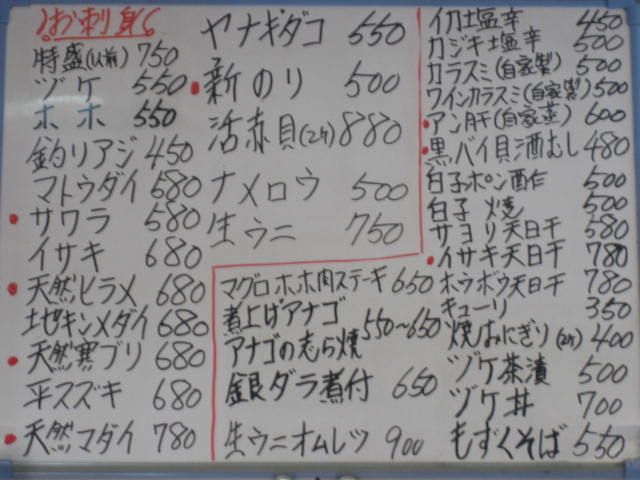 お刺身
特盛(1人前) 750
ヅケ 550
ホホ 550
釣りアジ 450
マトウダイ 680
サワラ 580
イサキ 680
天然ヒラメ 680
地キンメダイ 680
天然寒ブリ 680
平スズキ 680
天然マダイ 780
ヤナギダコ 550
新のり 500
活赤貝(2ヶ) 880
ナメロウ 500
生ウニ 750
マグロホホ肉ステーキ 650
煮上げアナゴ 550~650
アナゴの志ら焼
銀ダラ煮付 650
生ウニオムレツ 900
イカ塩辛 450
カジキ塩辛 500
カラスミ(自家製) 500
ワインカラスミ(自家製) 500
アン肝(自家蒸) 600
黒バイ貝酒むし 480
白子ポン酢 500
白子焼 500
サヨリ天日干 580
イサキ天日干 780
ホウボウ天日干 780
キューリ 350
焼おにぎり(2ヶ) 400
ヅケ茶漬 500
ヅケ丼 700
もずくそば 550